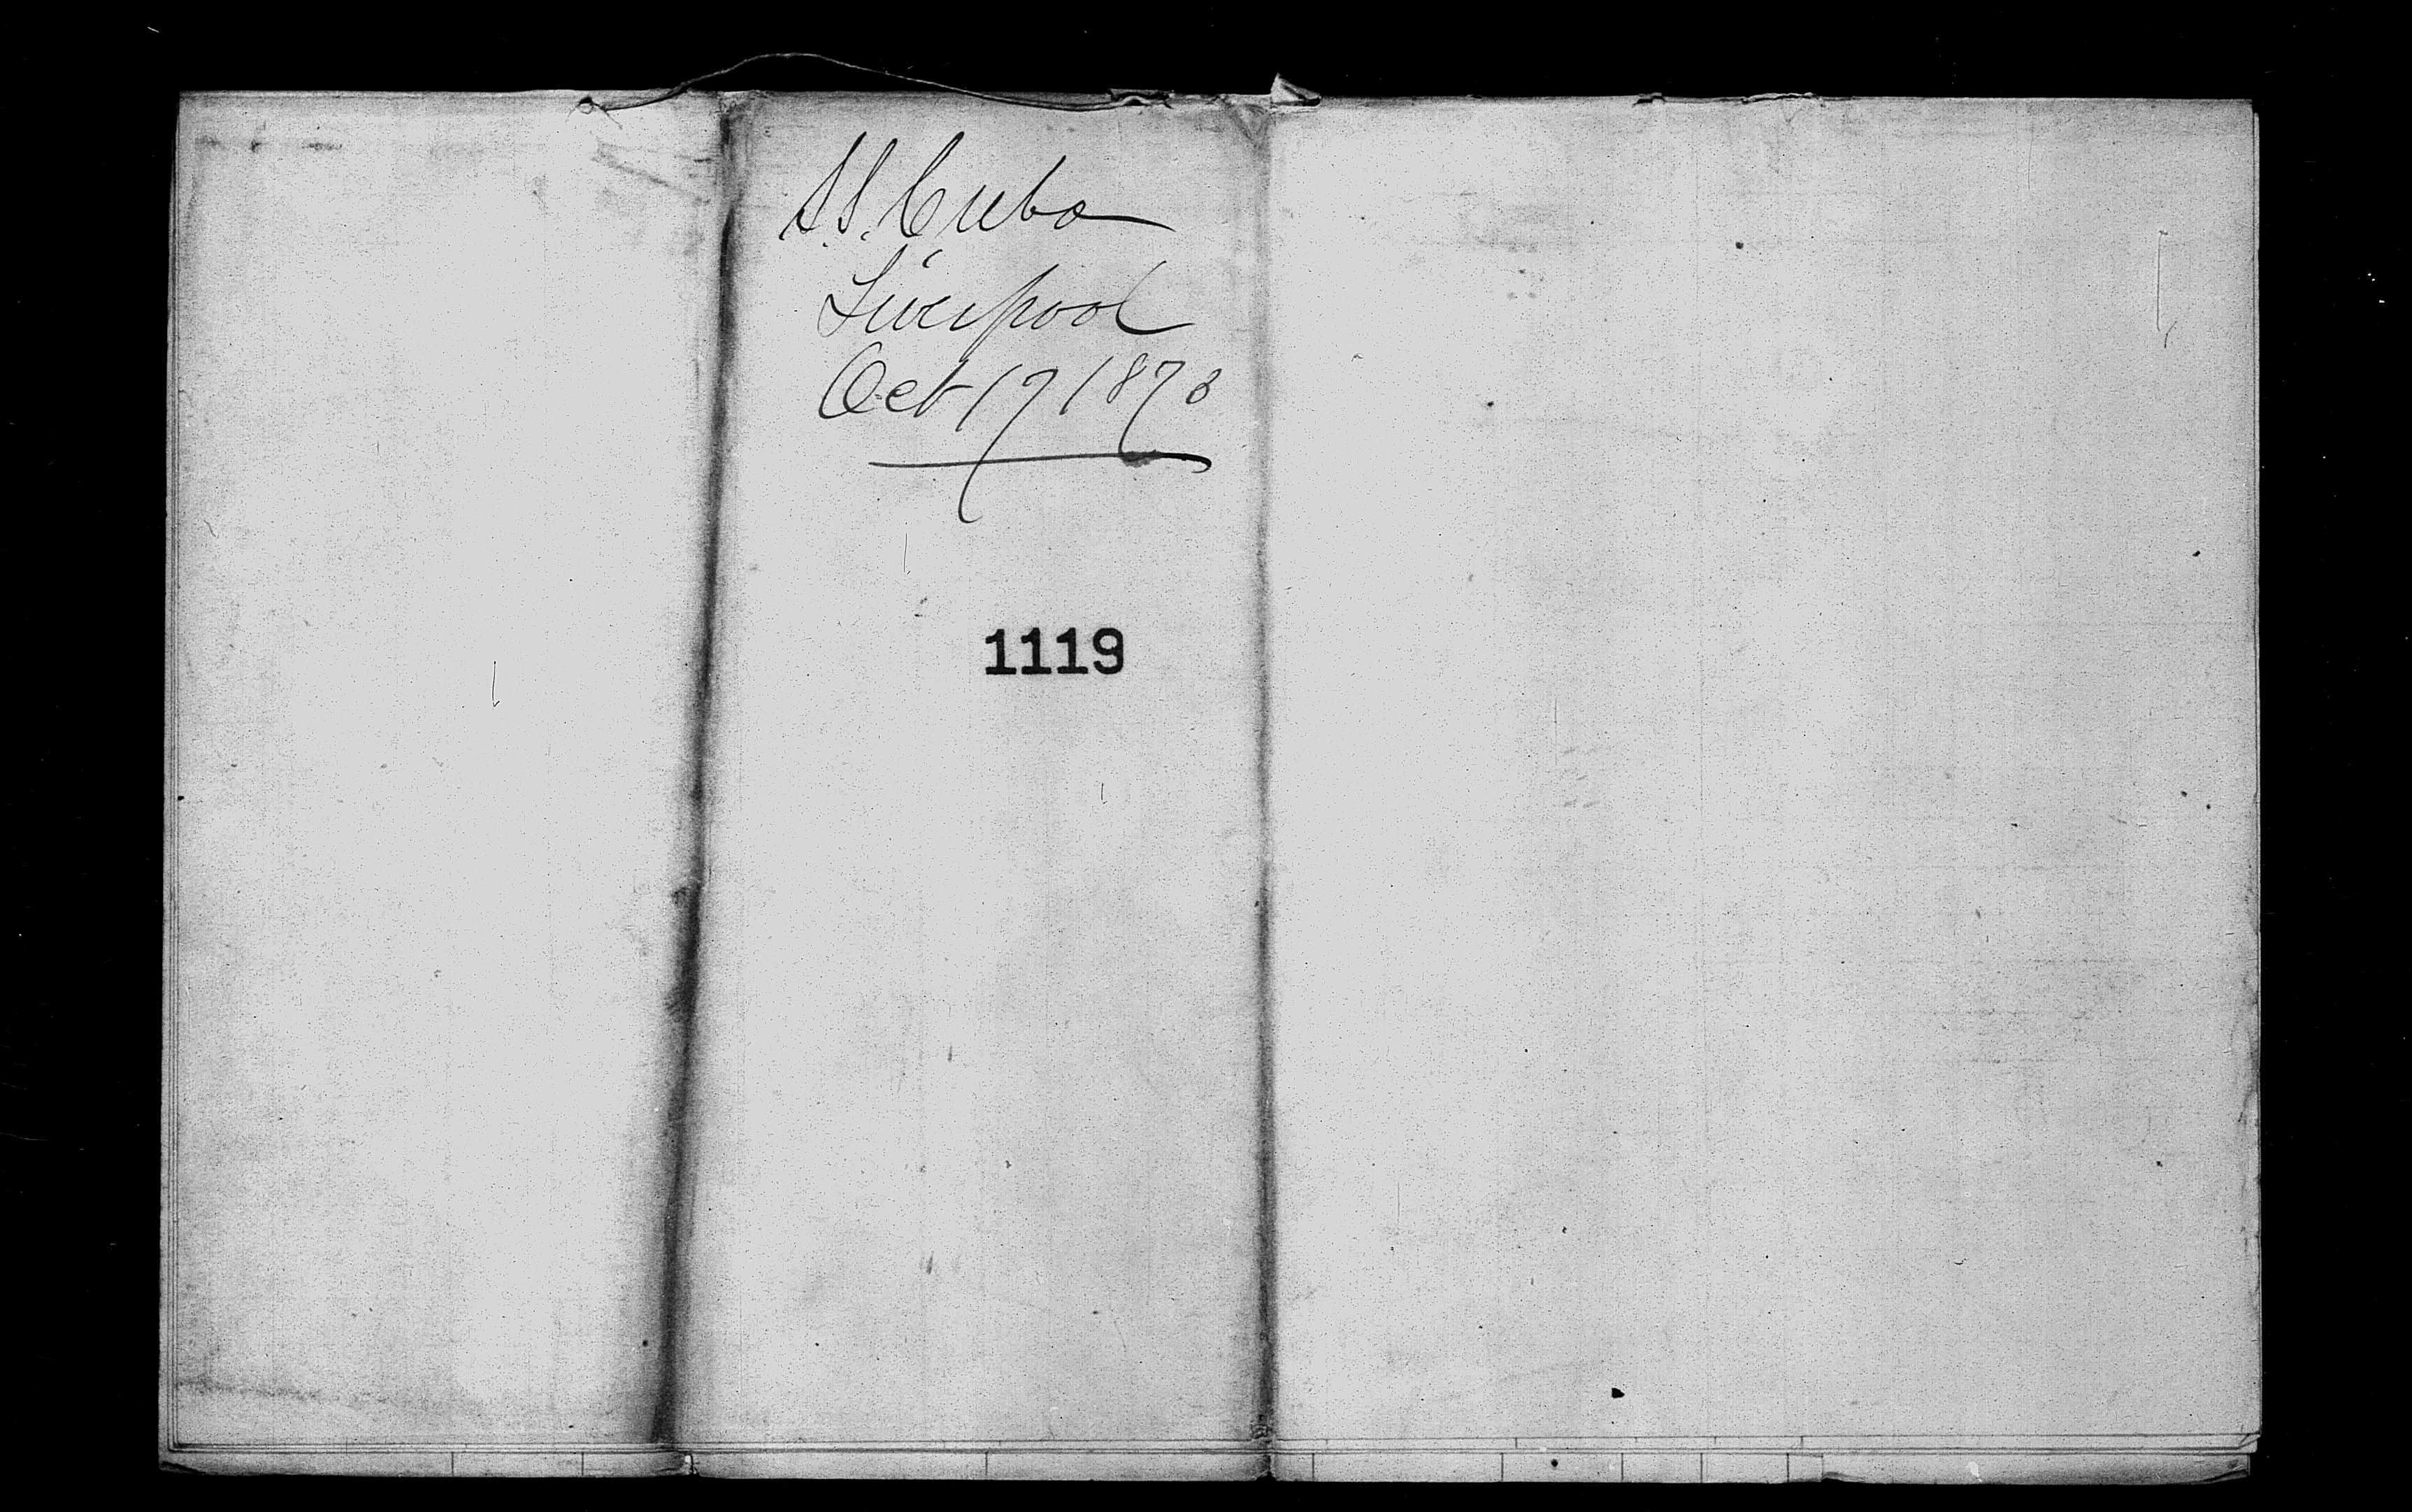 S.S. Cuba
Liverpool
Oct 17 1873
1119